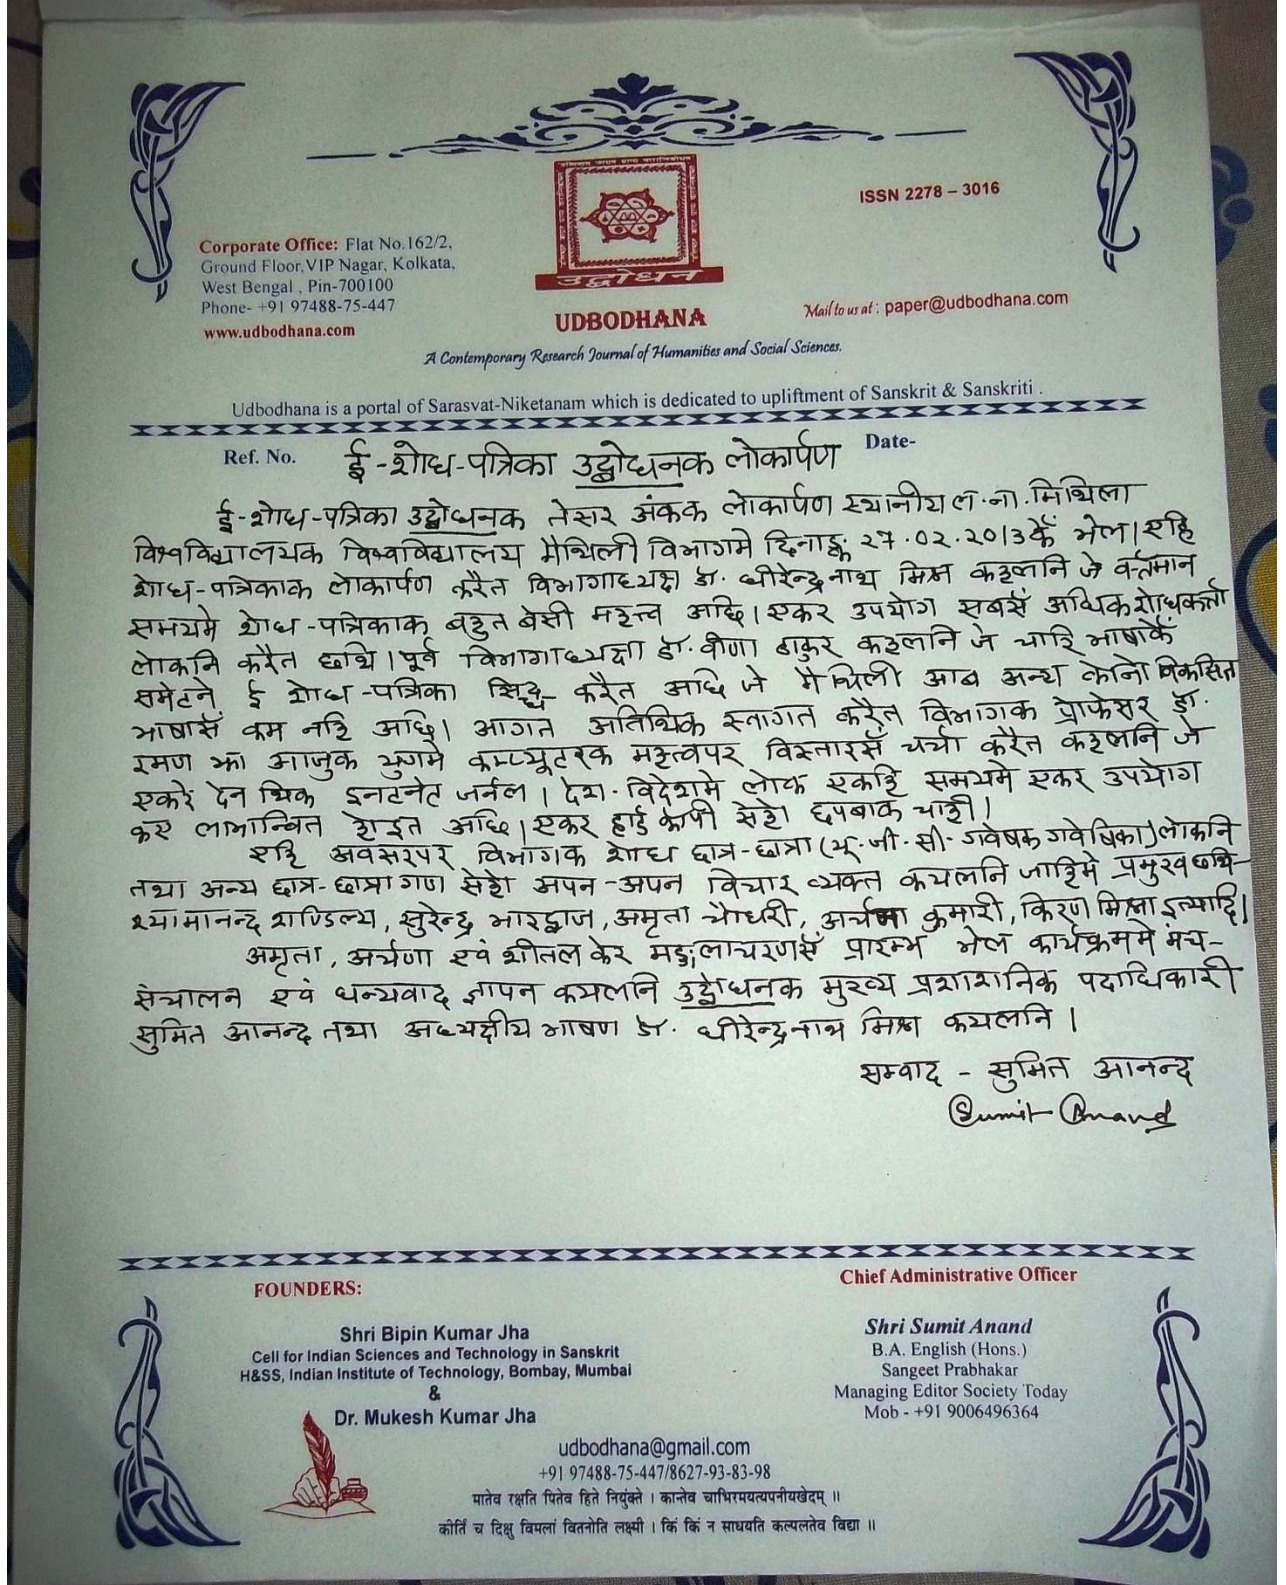 ISSN 2278 – 3016
Corporate Office: Flat No.162/2,
Ground Floor,VIP Nagar, Kolkata,
West Bengal , Pin-700100
Phone- +91 97488-75-447
www.udbodhana.com
उद्बोधन
UDBODHANA
Mail to us at : paper@udbodhana.com
A Contemporary Research Journal of Humanities and Social Sciences.
Udbodhana is a portal of Sarasvat-Niketanam which is dedicated to upliftment of Sanskrit & Sanskriti .
Ref. No.
Date-
ई-शोध-पत्रिका उद्बोधनक लोकार्पण
ई-शोध-पत्रिका उद्बोधनक तेसर अंकक लोकार्पण स्थानीय ल.ना.मिथिला
विश्वविद्यालयक विश्वविद्यालय मैथिली विभागमे दिनाङ्क २७.०२.२०१३केँ भेल।एहि
शोध-पत्रिकाक लोकार्पण करैत विभागाध्यक्ष डॉ. धीरेन्द्र नाथ मिश्र कहलनि जे वर्तमान
समयमे शोध-पत्रिकाक बहुत बेसी महत्त्व अछि।एकर उपयोग सबसँ अधिक शोधकर्ता
लोकनि करैत छथि।पूर्व विभागाध्यक्षा डॉ. वीणा ठाकुर कहलनि जे चारि भाषाकेँ
समेटने ई शोध-पत्रिका सिद्ध करैत अछि जे मैथिली आब अन्य कोनो विकसित
भाषासँ कम नहि अछि। आगत अतिथिक स्वागत करैत विभागक प्रोफेसर डॉ.
रमण झा आजुक युगमे कम्प्यूटरक महत्वपर विस्तारसँ चर्चा करैत कहलनि जे
एकरे देन थिक इनटनेट जर्नल। देश-विदेशमे लोक एकहि समयमे एकर उपयोग
कए लाभान्वित होइत अछि।एकर हार्ड कॉपी सेहो छपबाक चाही।
एहि अवसरपर विभागक शोध छात्र-छात्रा (यू.जी.सी. गवेषक गवेषिका)लोकनि
तथा अन्य छात्र-छात्रा गण सेहो अपन-अपन विचार व्यक्त कयलनि जाहिमे प्रमुख छथि-
श्यामानन्द शाण्डिल्य, सुरेन्द्र भारद्वाज, अमृता चौधरी, अर्चणा कुमारी, किरण मिश्रा इत्यादि।
अमृता, अर्चणा एवं शीतल केर मङ्गलाचरणसँ प्रारम्भ भेल कार्यक्रममे मंच-
संचालन एवं धन्यवाद ज्ञापन कयलनि उद्बोधनक मुख्य प्रशाशनिक पदाधिकारी
सुमित आनन्द तथा अध्यक्षीय भाषण डॉ. धीरेन्द्रनाथ मिश्र कयलनि।
सम्वाद - सुमित आनन्द
Sumit Anand
FOUNDERS:
Shri Bipin Kumar Jha
Cell for Indian Sciences and Technology in Sanskrit
H&SS, Indian Institute of Technology, Bombay, Mumbai
&
Dr. Mukesh Kumar Jha
Chief Administrative Officer
Shri Sumit Anand
B.A. English (Hons.)
Sangeet Prabhakar
Managing Editor Society Today
Mob - +91 9006496364
udbodhana@gmail.com
+91 97488-75-447/8627-93-83-98
मातेव रक्षति पितेव हिते नियुंक्ते । कान्तेव चाभिरमयत्यपनीयखेदम् ॥
कीर्तिं च दिक्षु विमलां वितनोति लक्ष्मी । किं किं न साधयति कल्पलतेव विद्या ॥